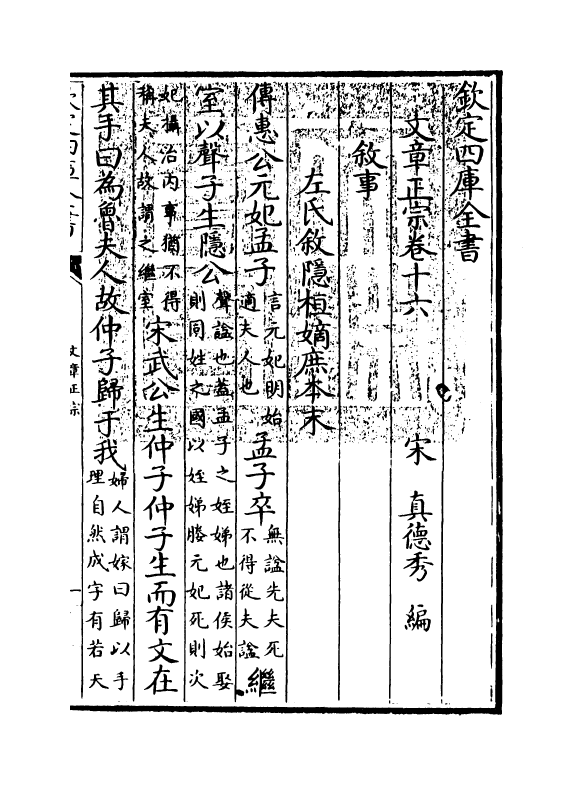 欽定四庫全書
文章正宗卷十六　宋　真德秀　編
敘事
左氏敘隱桓嫡庶本末
傳惠公元妃孟子言元妃明始適夫人也孟子卒無諡先夫死不得從夫諡繼
室以聲子生隱公聲諡也蓋孟子之姪娣也諸侯始娶則同姓之國以姪娣媵元妃死則次
妃攝治内事猶不得稱夫人故謂之繼室宋武公生仲子仲子生而有文在
其手曰為魯夫人故仲子歸于我婦人謂嫁曰歸以手理自然成字有若天
文章正宗
一